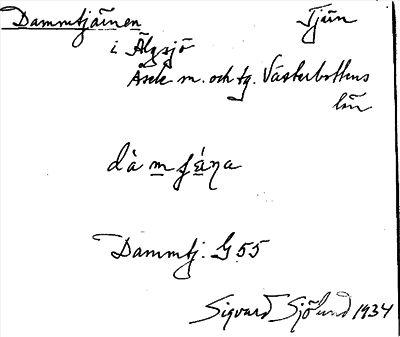 Dammtjärnen Tjärn
i Älgsjö
Åsele sn. och tg. Västerbottens
län
Dammtj. G 55
Sigvard Sjölund 1934